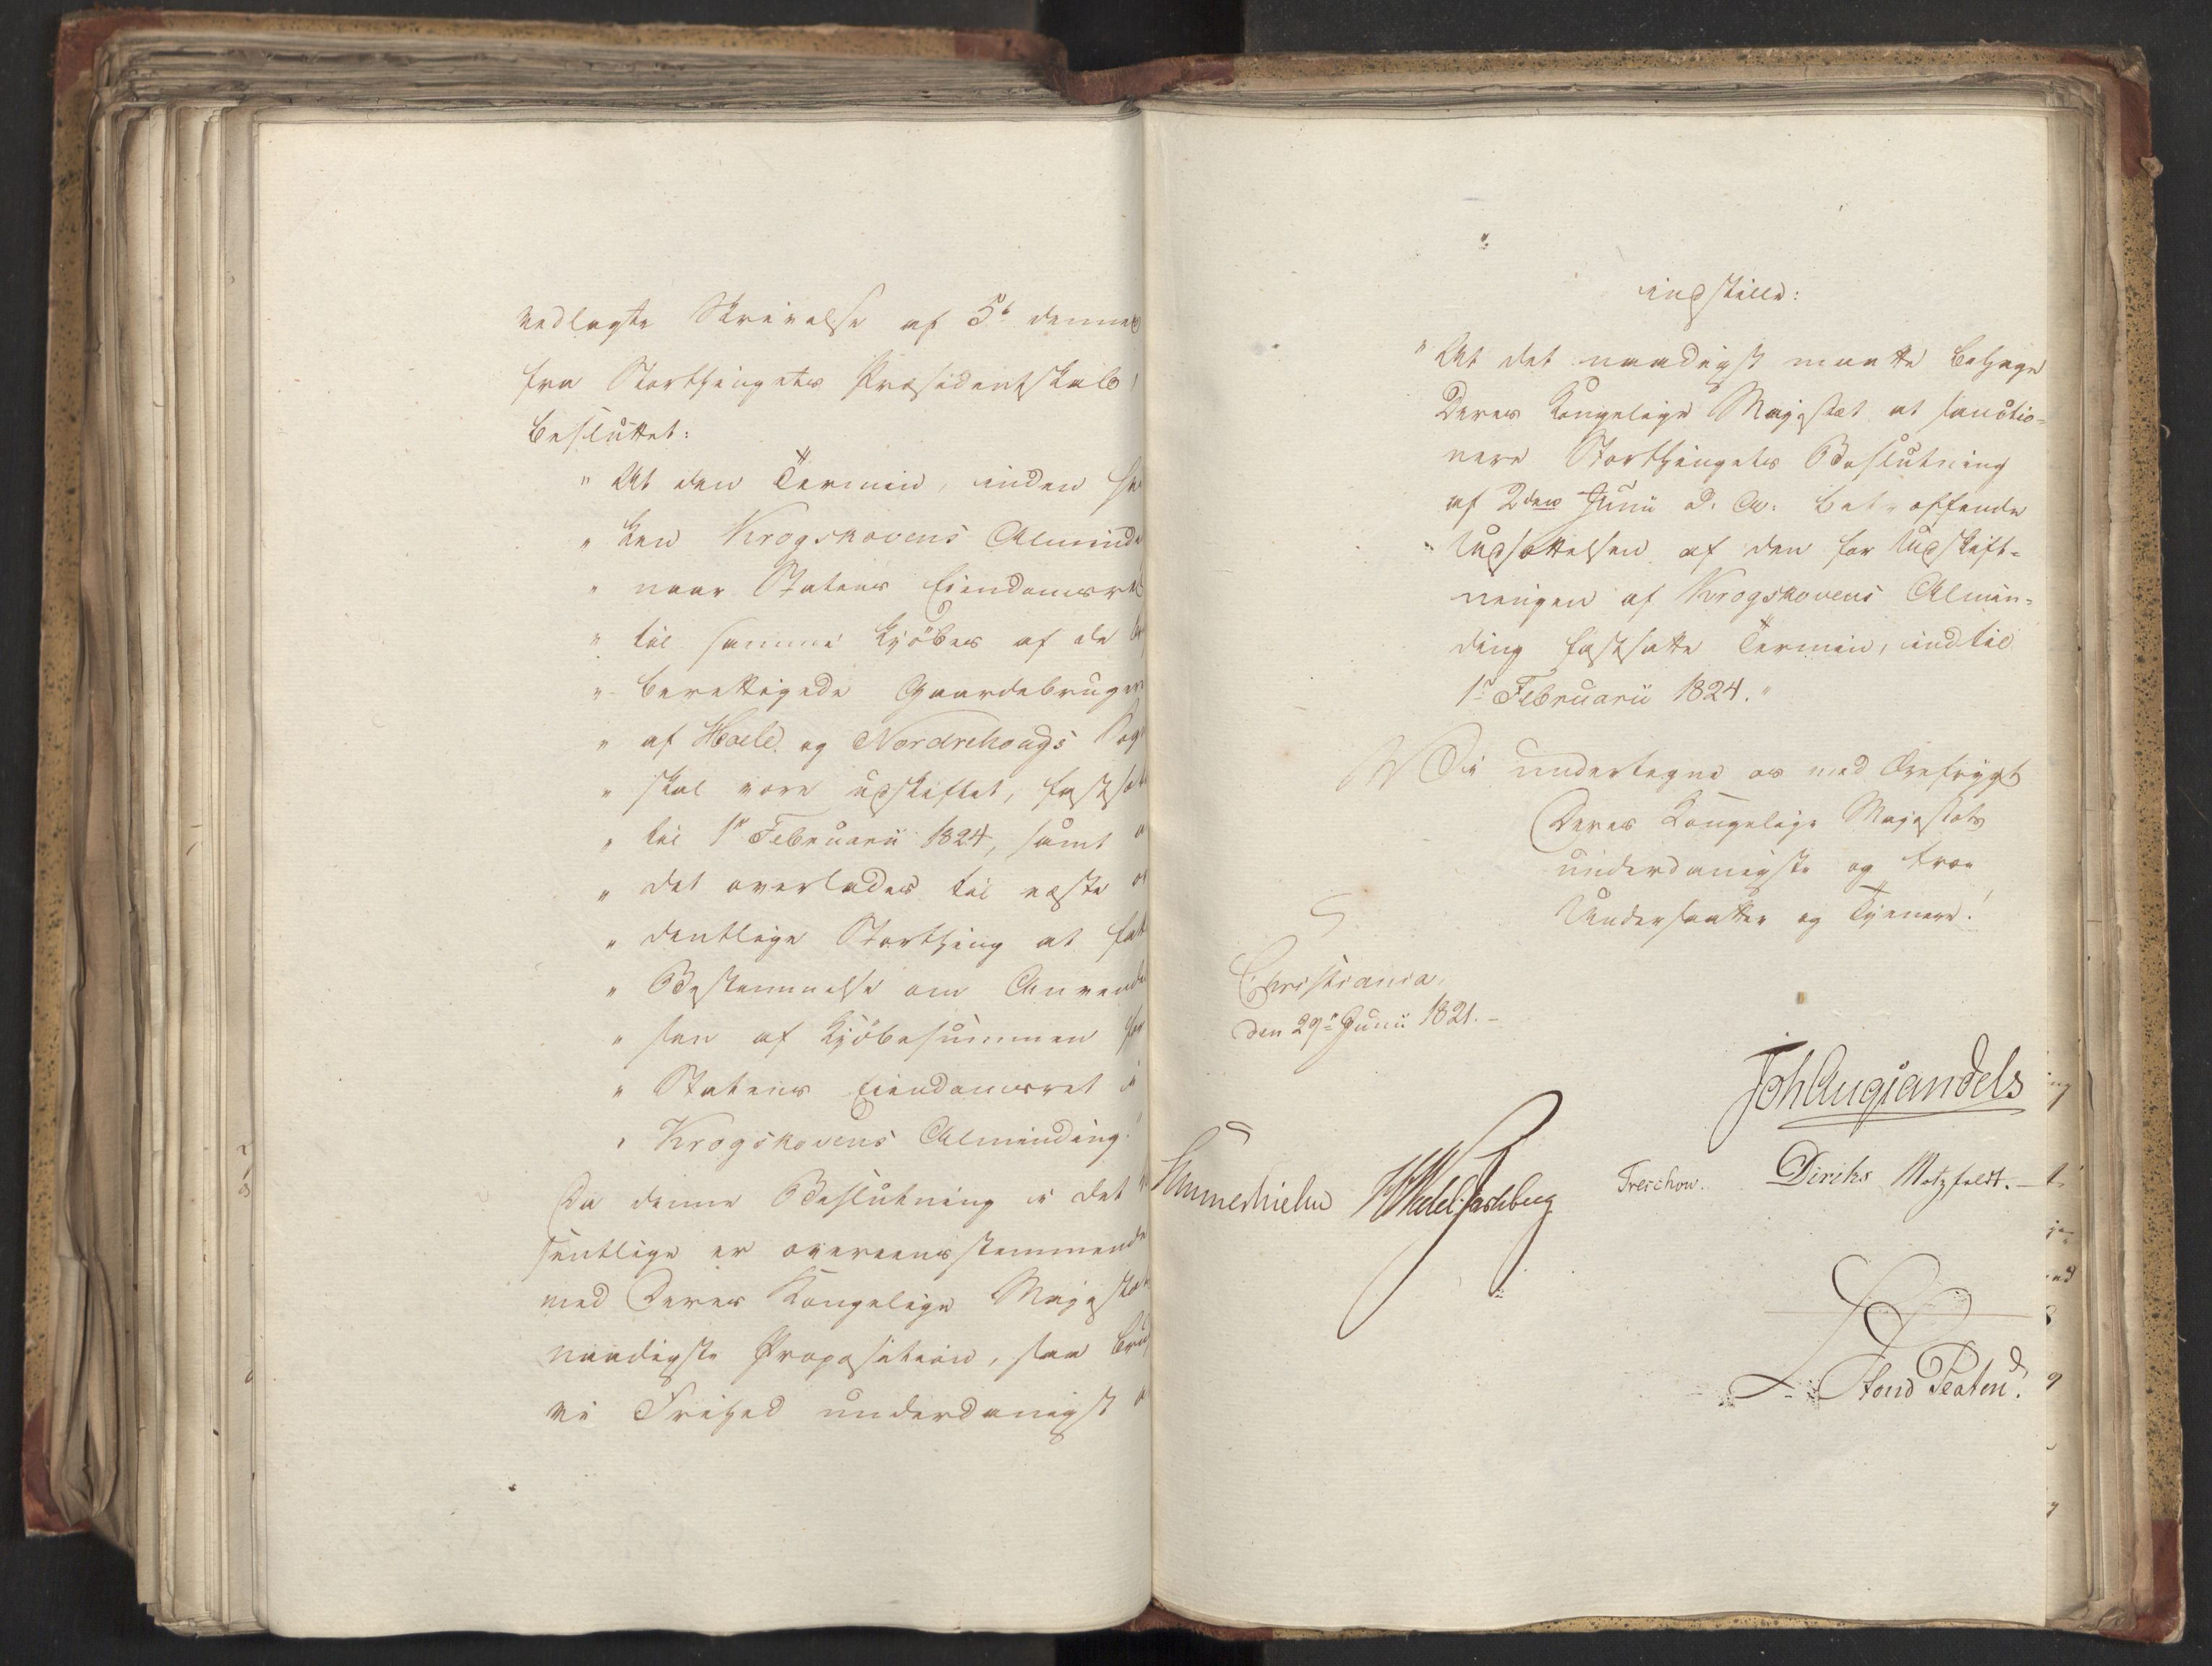 vedlagte Skrivelse af 5t dennes
fra Storthingets Præsidentskab,
besluttet:
" At den Termin, inden
" ken Krogskovens Alminde
" naar Statens Eiendomsret
" til samme kjöbes af de
" berettigede Gaardebruger
" af Hoele og Norderhougs
" skal være udskiftet, fastsæt
" til 1r Februarii 1824, samt
" det overlades til næste or
" dentlige Storthing at fat
" Bestemmelse om Anvendel
" sen af Kjöbesummen for
" Statens Eiendomsret i
" Krogskovens Alminding."
Da denne Beslutning i det
sentlige er overeensstemmende
med Deres Kongelige Majestæts
naadigste Proposition, saa
vi Frihed underdanigst at
indstille:
"At det naadigst maatte behage
Deres Kongelige Majestæt at sanctio-
nere Storthingets Beslutning
af 2den Junii d. A. betræffende
Udsættelsen af den for Udskift-
ningen af Krogskovens Almin-
ding fastsatte Termin, indtil
1r Februarii 1824."
Vi undertegne os med Ærefrygt
Deres Kongelige Majestæts
underdanigste og troe
Undersaatter og Tjenere!
Christiania,
den 29r Junii 1821.-
Joh Aug Sandels
Sommerhielm HWedel Jarlsberg Treschow. Diriks Motzfeldt.